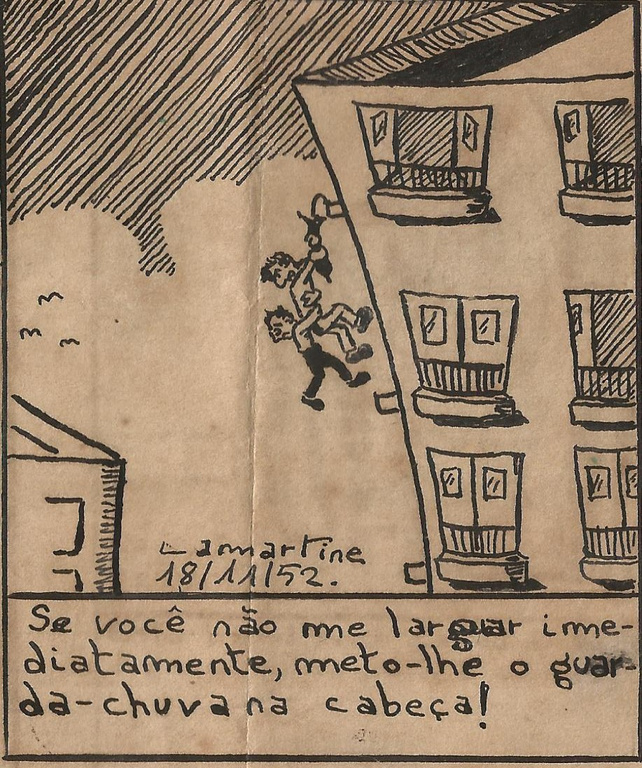 Lamartine
18/11/52.
Se você não me larguar imme-
diatamente, meto-lhe o guar-
da-chuva na cabeça!